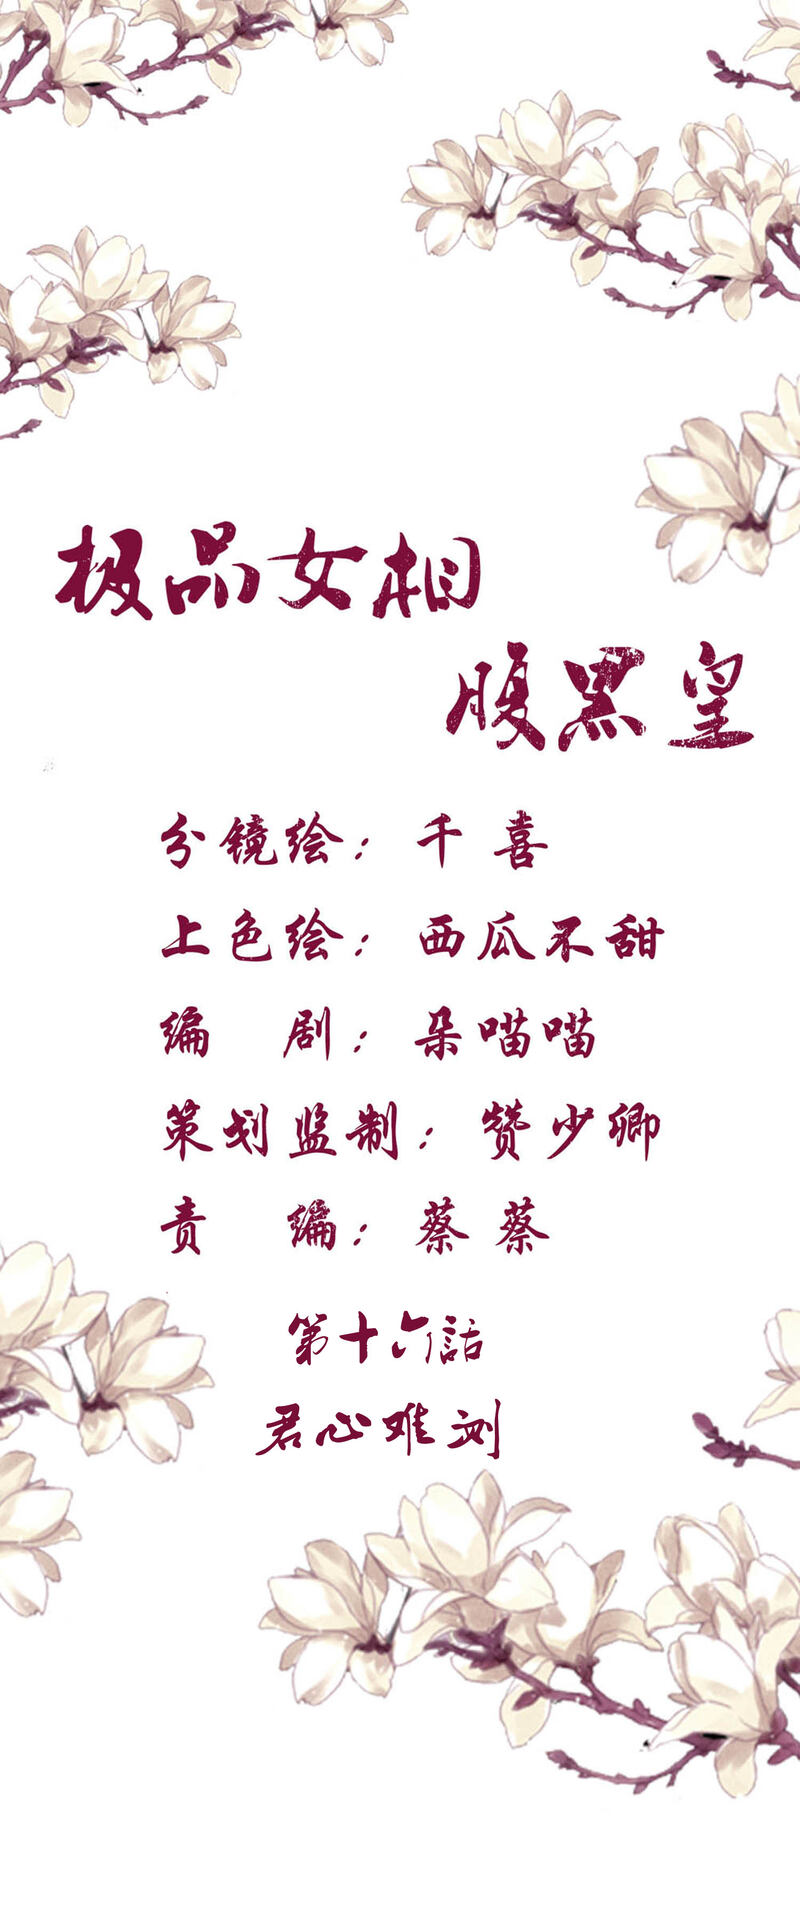 极品女相
腹黑皇
分镜绘：千喜
上色绘：西瓜不甜
编 剧：朵喵喵
策划监制：赞少卿
责 编：蔡蔡
第十六話
君心难测